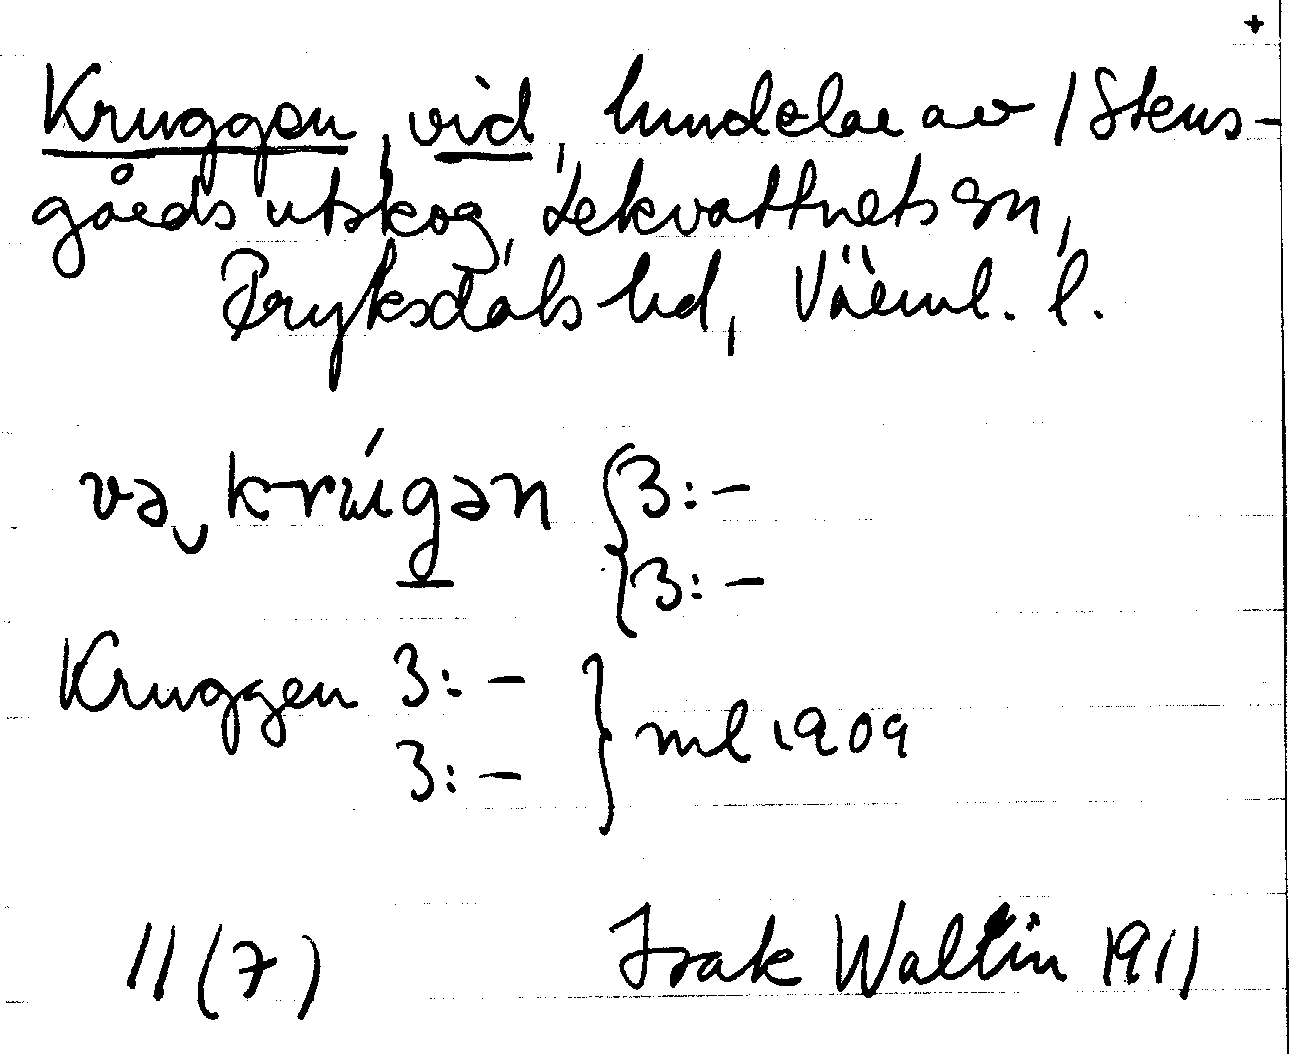 +
Kruggen, vid, hmdelar av 1 Stens-
gårds utskog, Lekvattnets sn,
Fryksdals hd, Värml. l.
və krúgən { 3:-
3:-
Kruggen 3:- } ml 1909
3:-
11 (7) Isak Wallin 1911